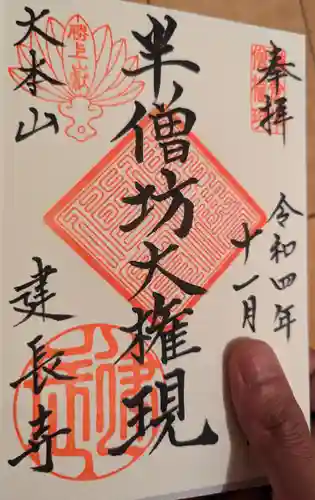 奉拝
令和四年
十一月
半僧坊大権現
大本山
建長寺